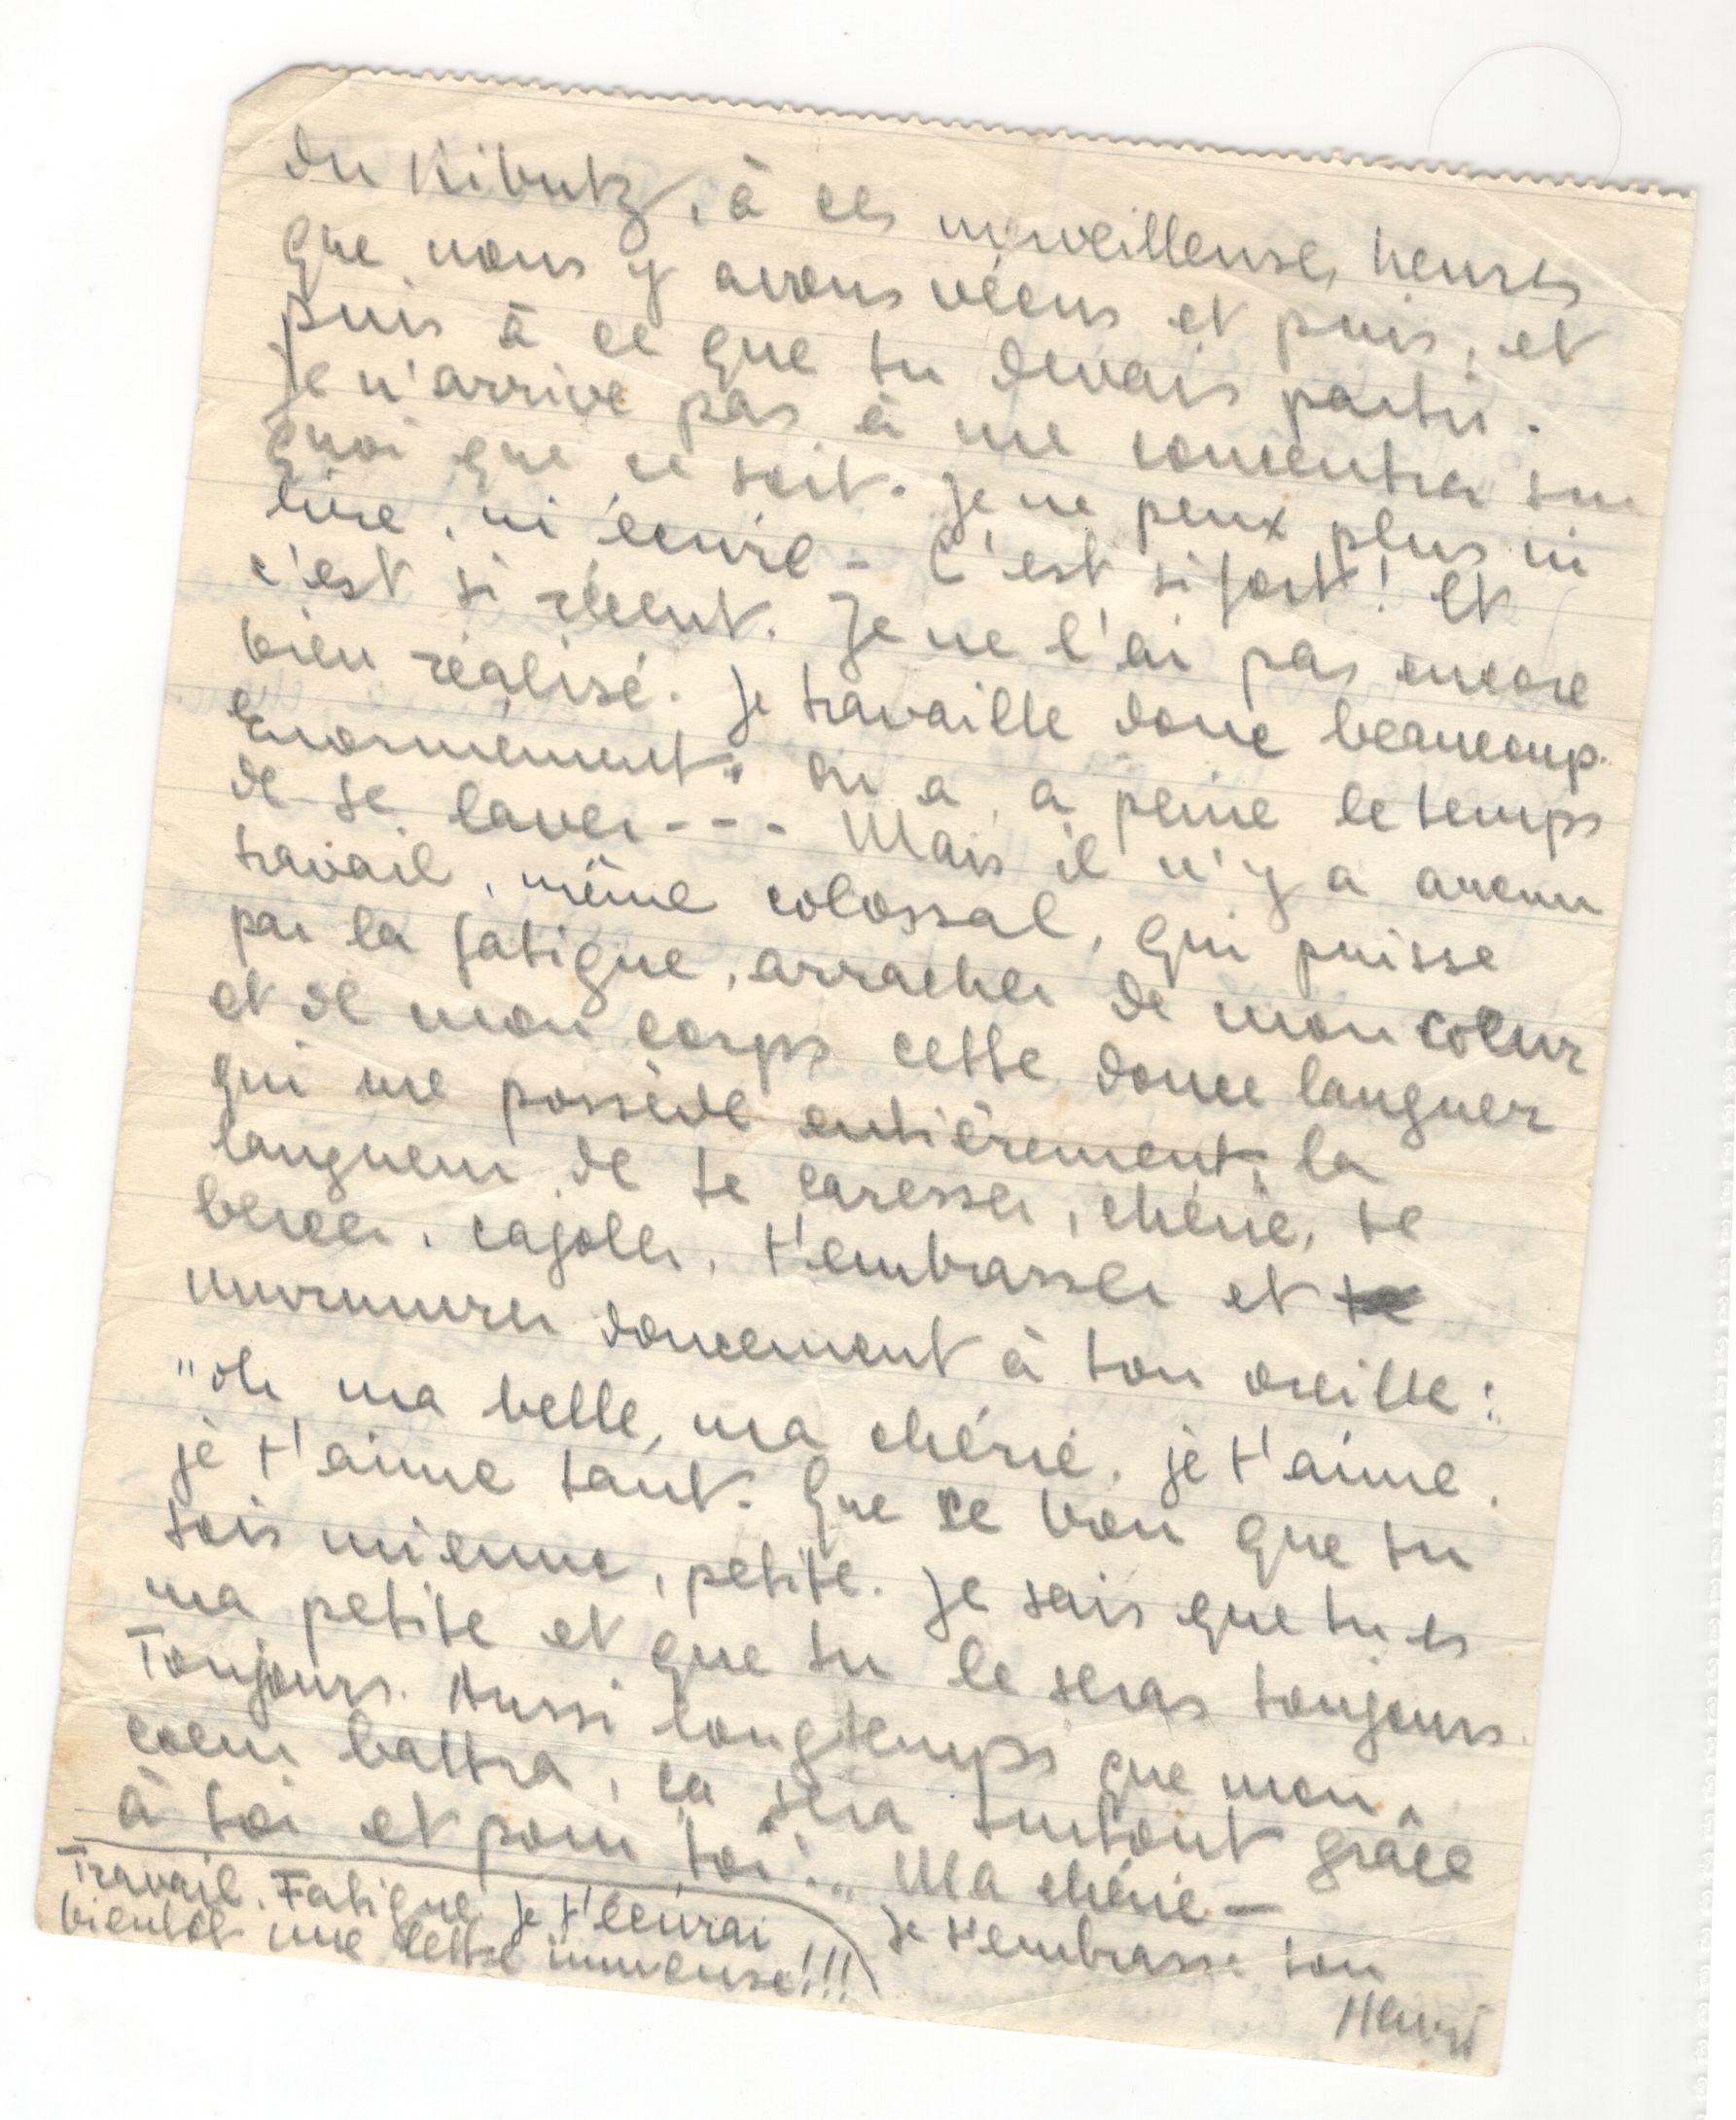 du Kibutz, à ces merveilleuses heures
que nous y avons vécus et puis, et
puis à ce que tu devais partir.
Je n'arrive pas à me concentrer sur
quoi que ce soit. Je ne peux plus ni
lire, ni écrire - C'est si fort! Et
c'est si récent. Je ne l'ai pas encore
bien réalisé. Je travaille donc beaucoup.
Enormément. On a à peine le temps
de se laver - - - Mais il n'y a aucun
travail, même colossal, qui puisse
par la fatigue, arracher de mon coeur
et de mon corps cette douce languer
qui me possède entièrement; la
langueur de te caresser, chérie, te
bercer, cajoler, t'embrasser et te
murmurer doucement à ton oreille:
"oh ma belle, ma chérie, je t'aime,
je t'aime tant. Que ce bon que tu
sois mienne, petite. Je sais que tu es
ma petite et que tu le seras toujours.
Toujours. Aussi longtemps que mon
coeur battra, ça sera surtout grâce
à toi et pour toi... Ma chérie —
Je t'embrasse ton
Henri
Travail. Fatigue. Je t'écrirai
bientôt une lettre immense!!!